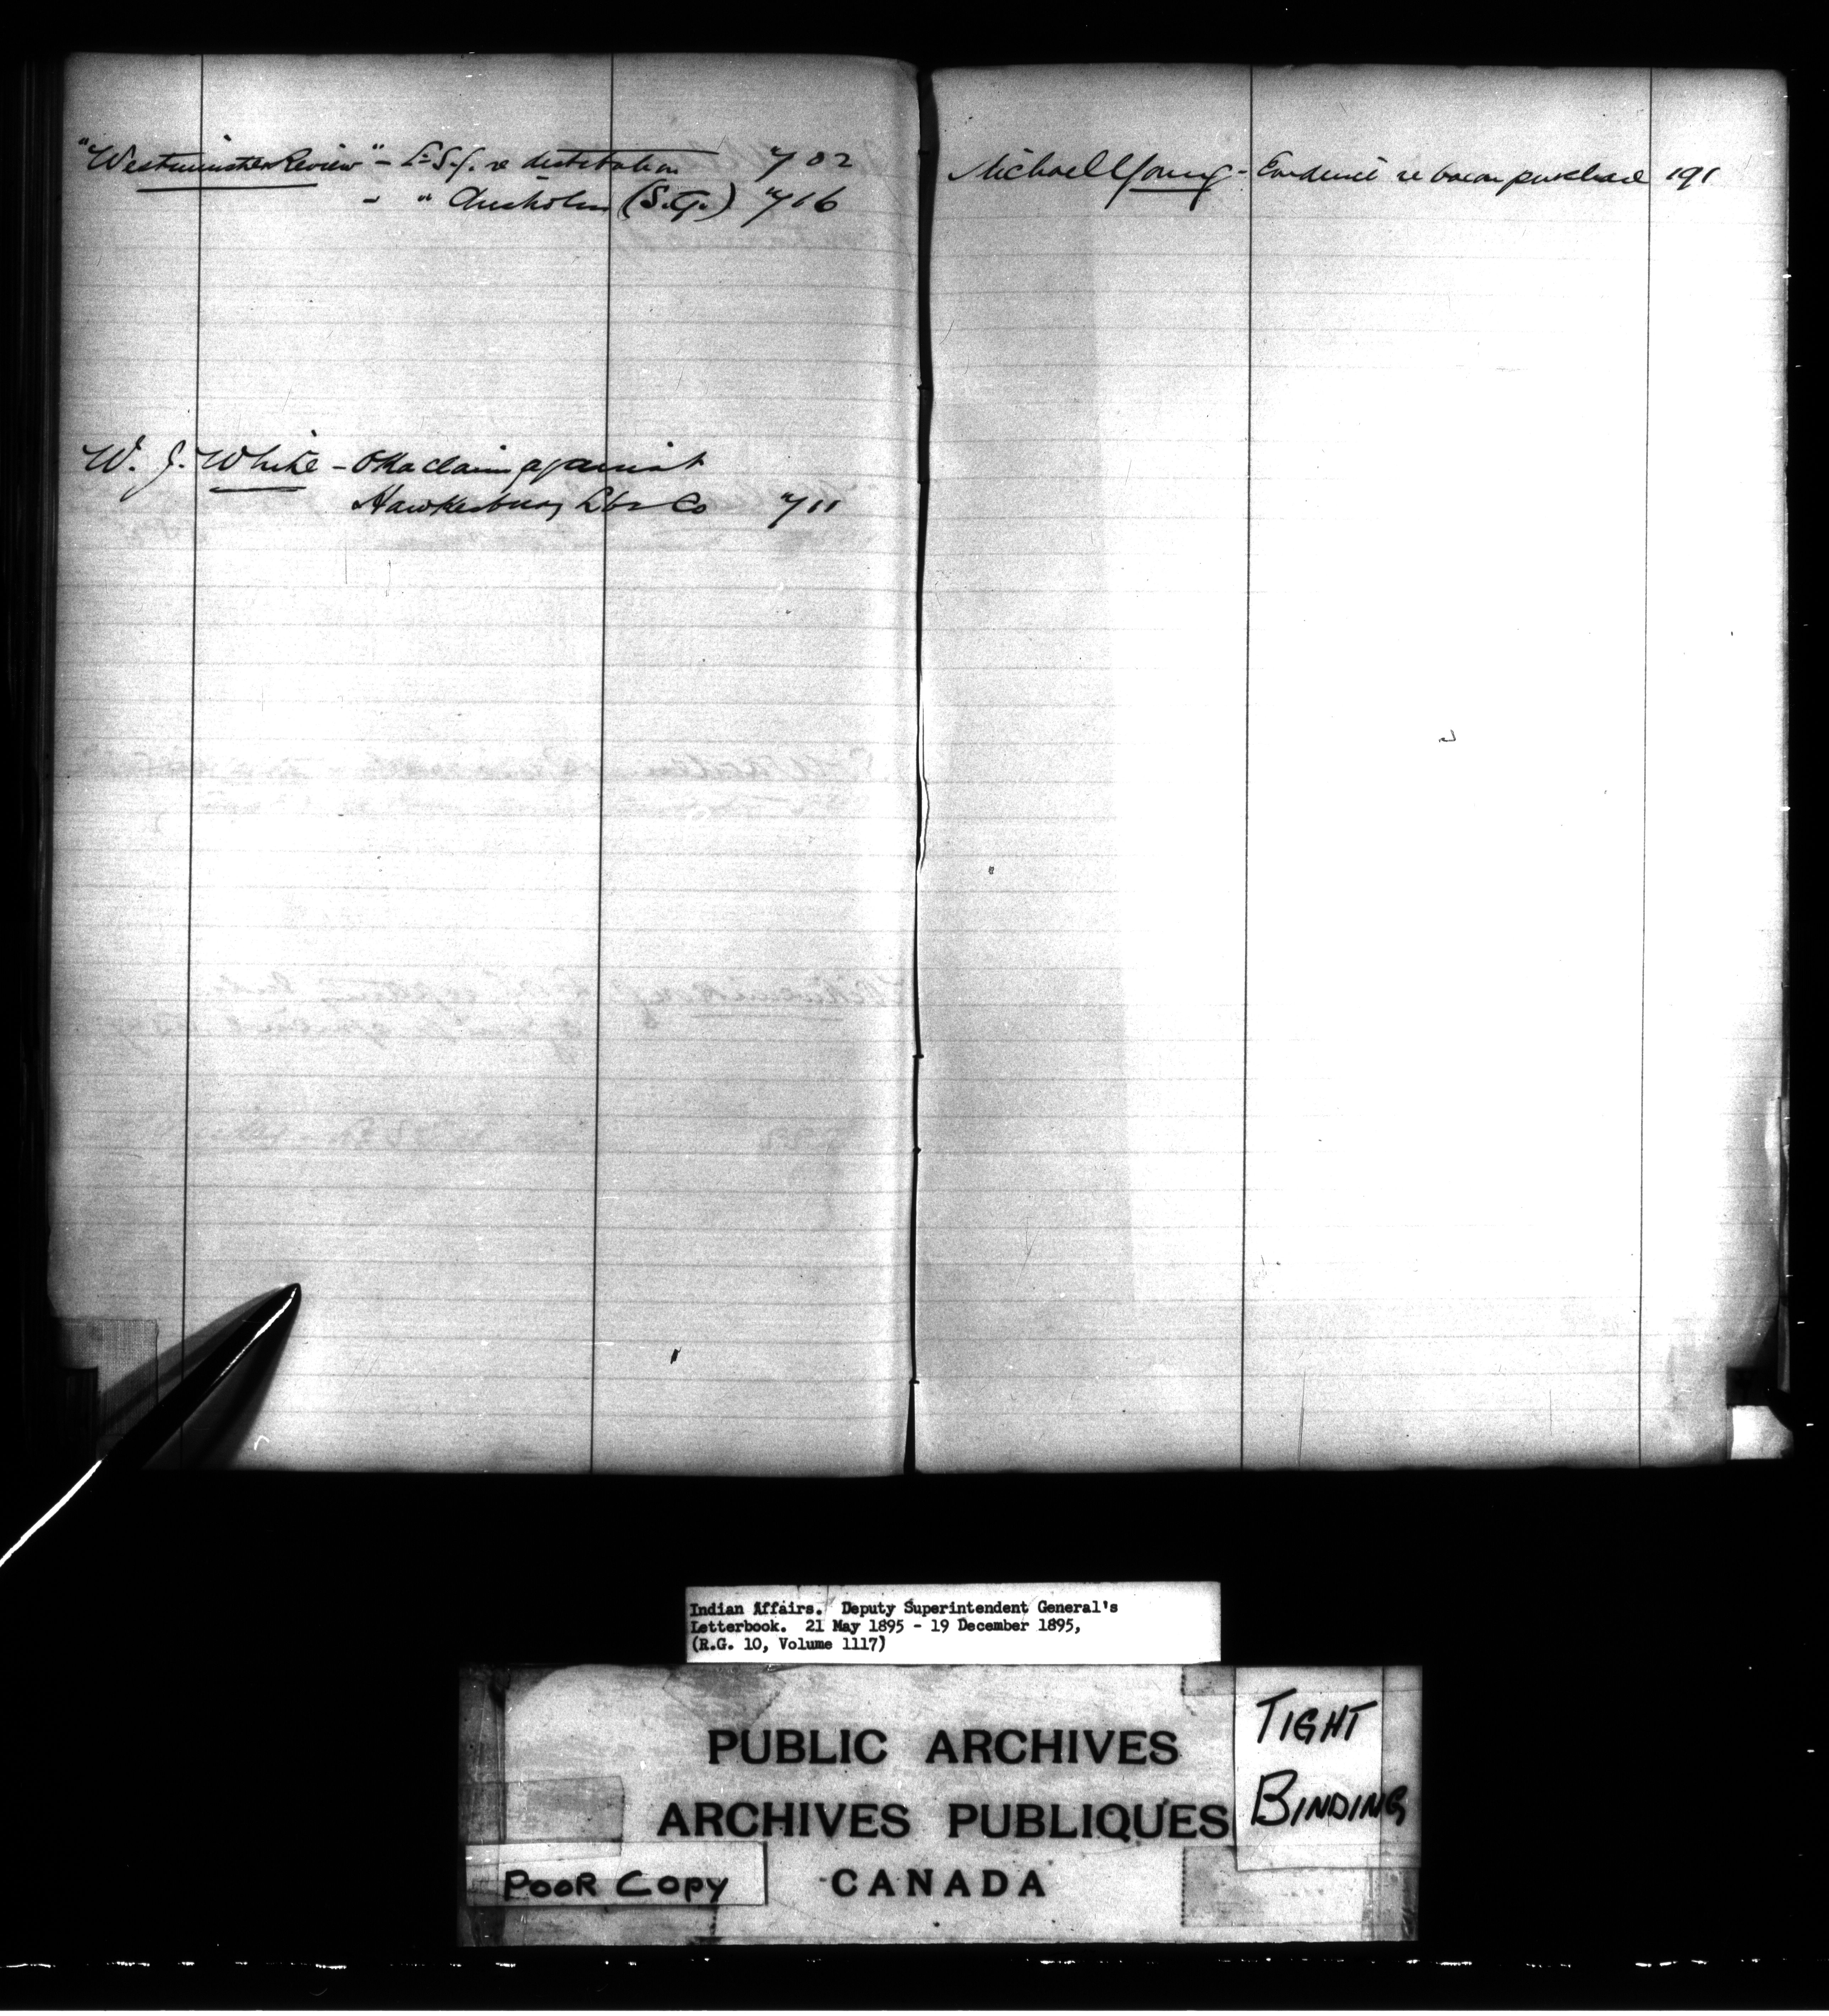 "Westminster Review" - L. S. G. re distribution 702
- " Chisholm (S.G.) 716
W. J. White - Oka claim against
Hawkesbury Lbr Co 711
Michael Young - Evidence re bacon purchase 191
Indian Affairs. Deputy Superintendent General's
Letterbook. 21 May 1895 - 19 December 1895,
(R.G. 10, Volume 1117)
PUBLIC ARCHIVES
ARCHIVES PUBLIQUES
CANADA
TIGHT
BINDING
POOR COPY